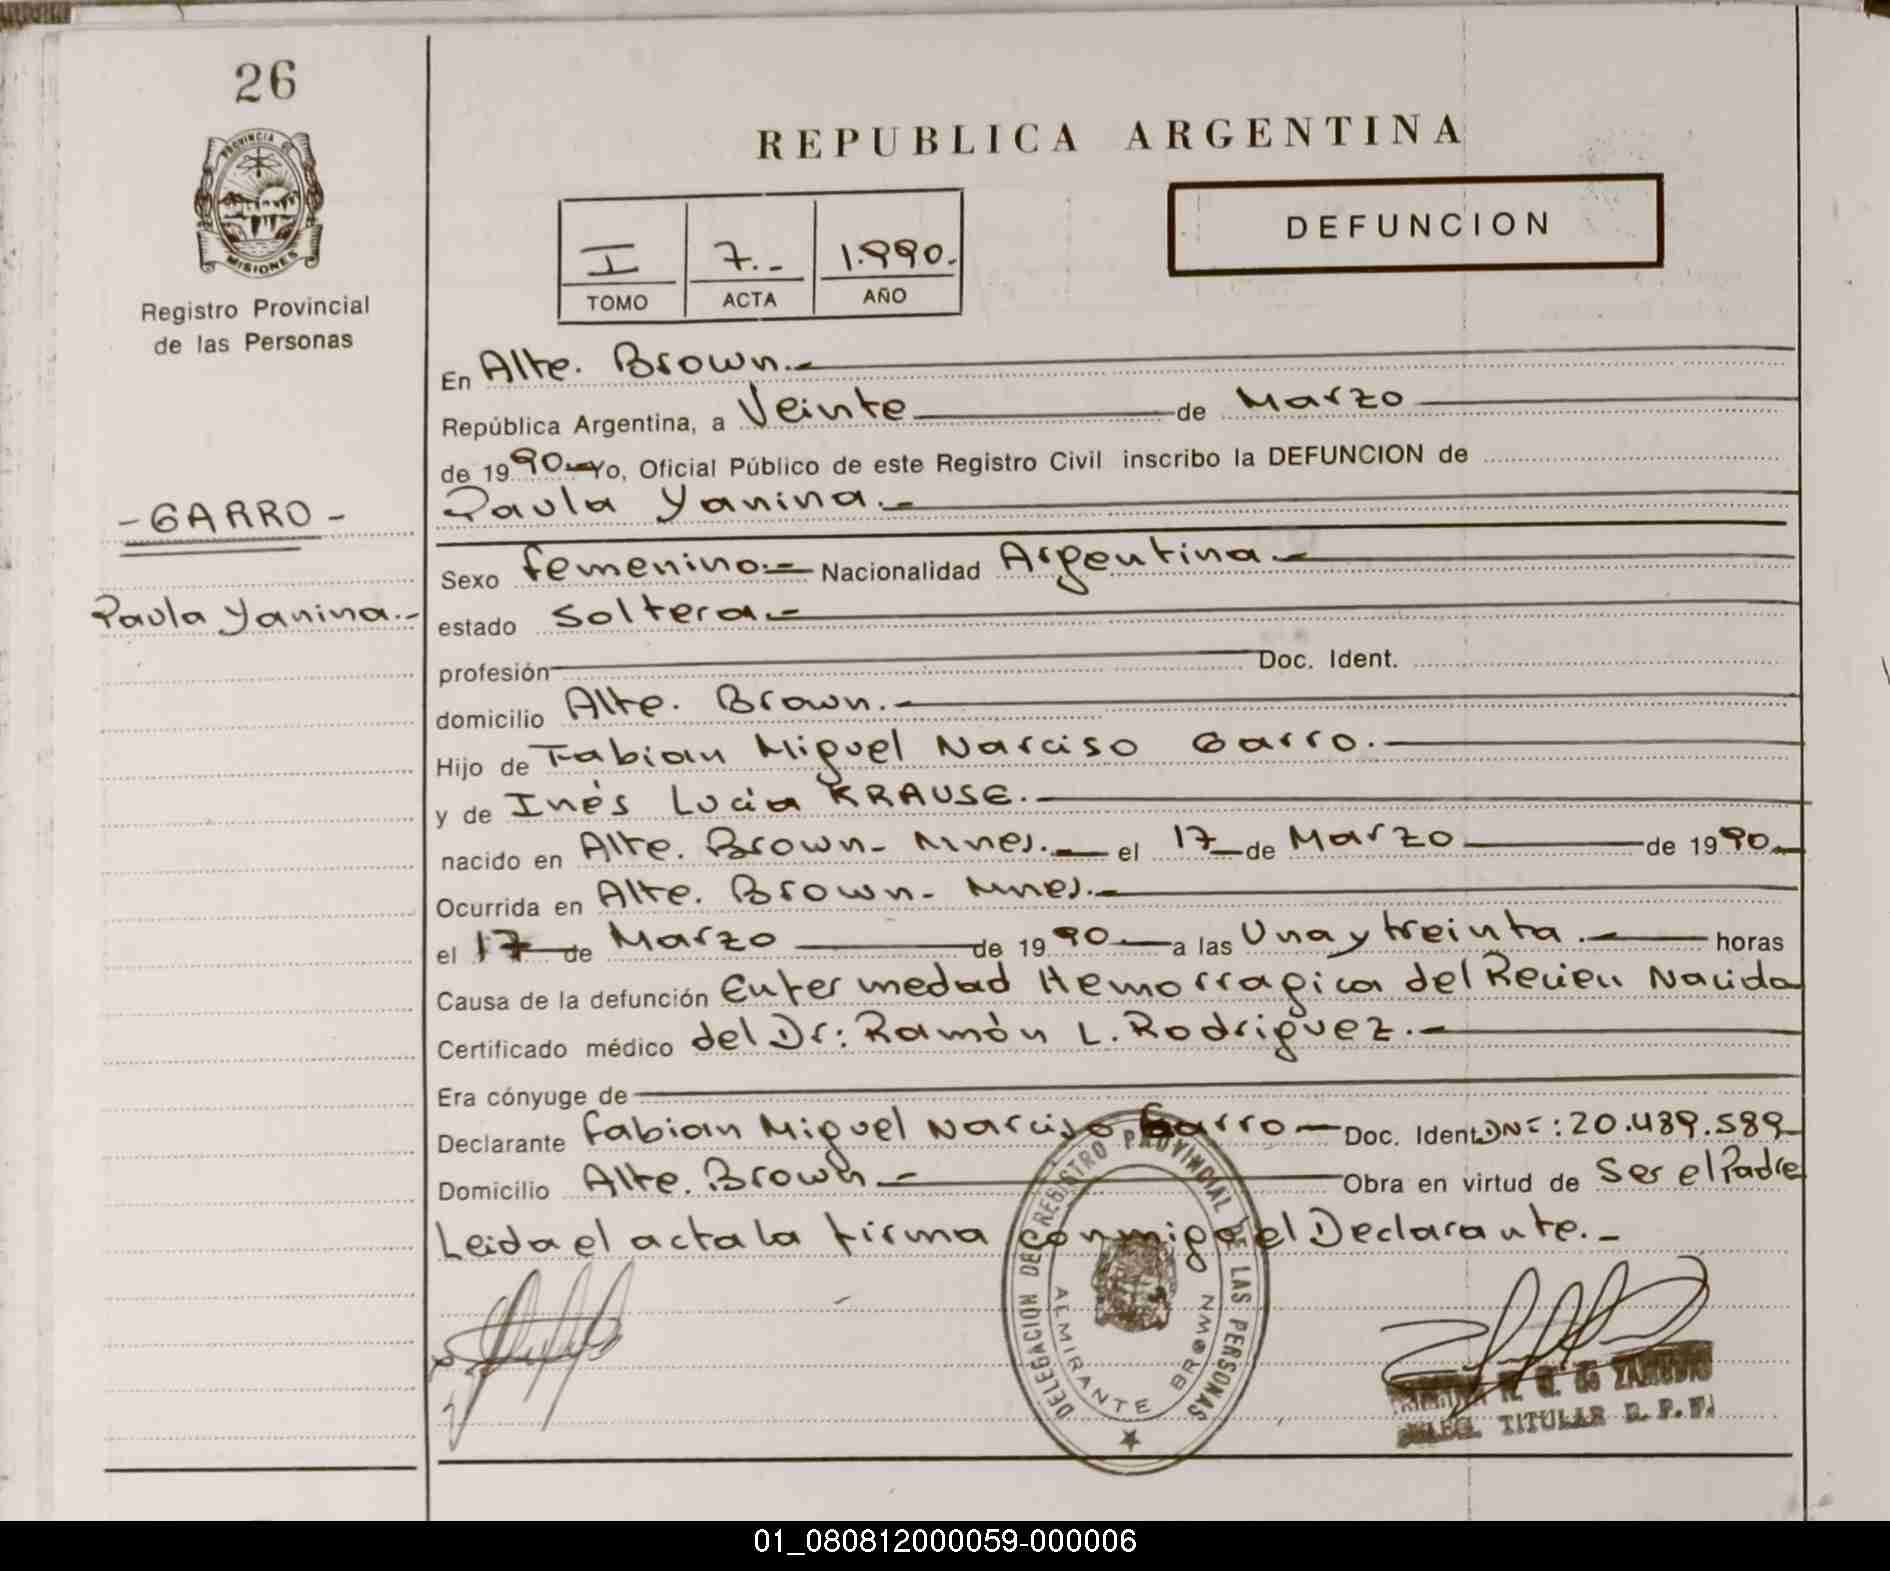 26
PROVINCIA DE
MISIONES
Registro Provincial
de las Personas
- GARRO -
Paula Yanina.-
REPUBLICA ARGENTINA
I 7.- 1.990.
TOMO ACTA AÑO
DEFUNCION
En Alte. Brown.-
República Argentina, a Veinte de Marzo
de 1990 Yo, Oficial Público de este Registro Civil inscribo la DEFUNCION de
Paula Yanina.-
Sexo femenino.- Nacionalidad Argentina.-
estado soltera.-
profesión Doc. Ident.
domicilio Alte. Brown.-
Hijo de Fabian Miguel Narciso Garro.-
y de Inés Lucia KRAUSE.-
nacido en Alte. Brown- Mnes.- el 17 de Marzo de 1990
Ocurrida en Alte. Brown- Mnes.-
el 17 de Marzo de 1990 a las Una y treinta.- horas
Causa de la defunción Enfermedad Hemorragica del Recien Nacido
Certificado médico del Dr: Ramón L. Rodriguez.-
Era cónyuge de
Declarante Fabian Miguel Narciso Garro Doc. Ident. DNI: 20.489.589
Domicilio Alte. Brown Obra en virtud de Ser el Padre
Leida el acta la firma conmigo el Declarante.-
DELEGACION DE REGISTRO PROVINCIAL DE LAS PERSONAS
ALMIRANTE BROWN
de ZAMUDIO
DELEG. TITULAR R. P. P.
01_080812000059-000006